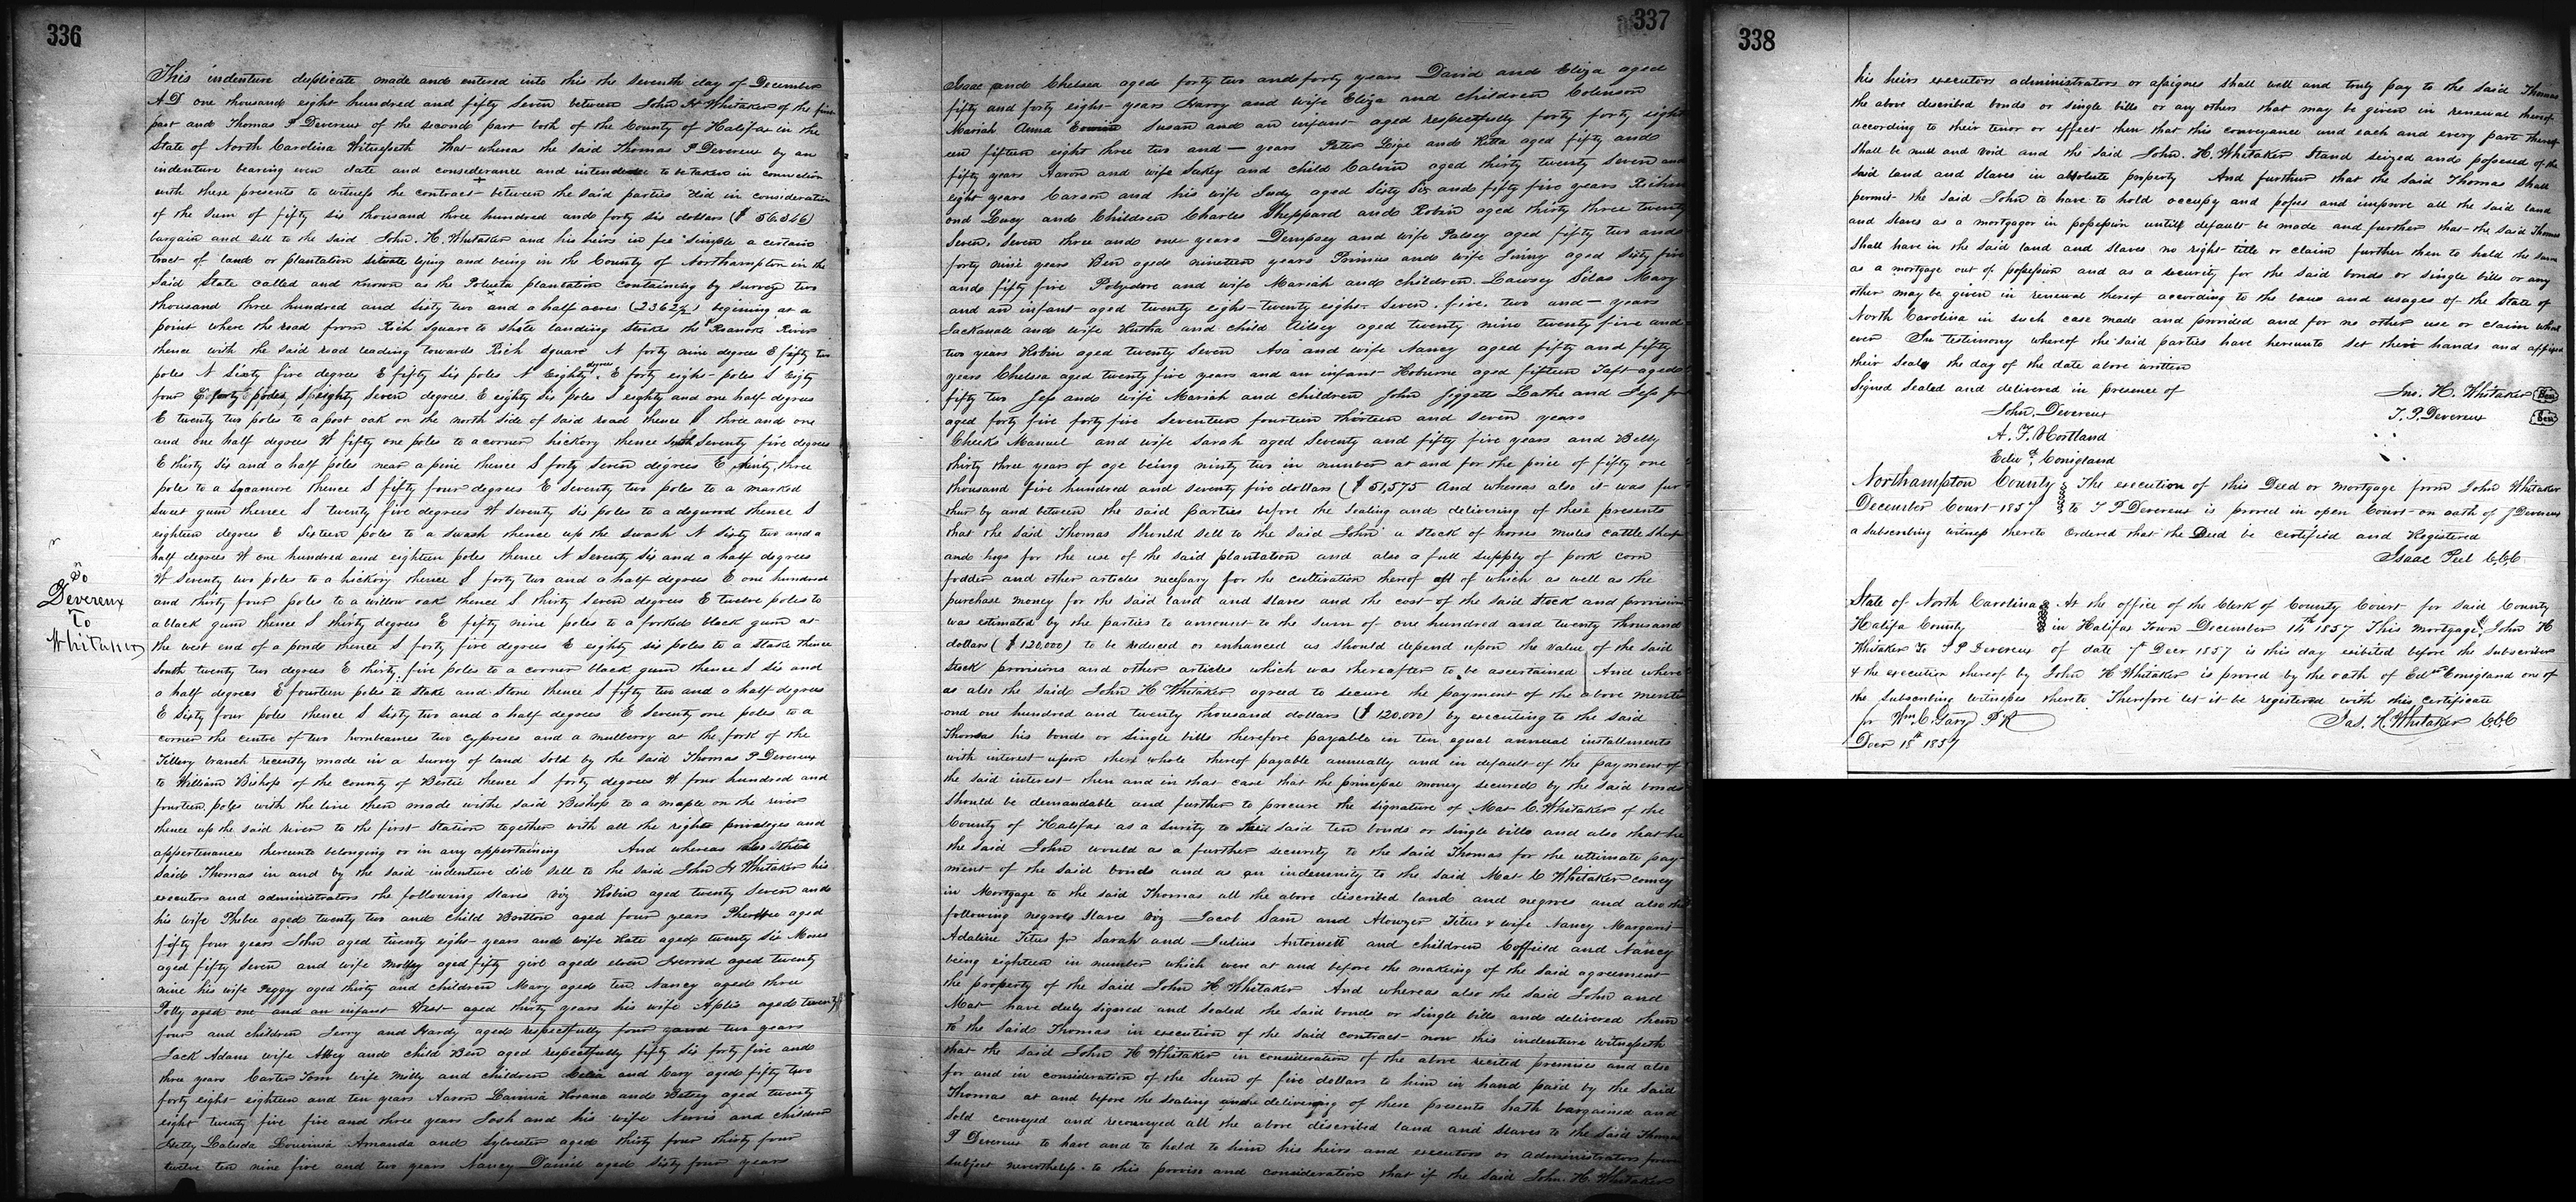 336
This indenture duplicate made and entered into this the seventh day of December
A D one thousand eight hundred and fifty Seven between John H Whitaker of the first
part and Thomas P Devereux of the second part both of the County of Halifax in the
State of North Carolina Witnesseth That whereas the said Thomas P Devereux by an
indenture bearing even date and considerance and intended to be taken in connection
with these presents to witness the contract between the said parties did in consideration
of the sum of fifty six thousand three hundred and forty six dollars ($ 56.346)
bargain and sell to the said John. H. Whitaker and his heirs in fee simple a certain
tract of land or plantation situate lying and being in the County of Northampton in the
Said State called and known as the Polenta plantation containing by survey two
thousand three hundred and sixty two and a half acres (2362½) begining at a
point where the road from Rich Square to shote landing strikes the Roanoke River
thence with the said road leading towards Rich Square N forty nine degrees E fifty two
poles N Sixty five degrees E fifty six poles N Eighty degrees E forty eight poles S Eigty
four E forty poles, S eighty Seven degrees E eighty six poles S eighty and one half degrees
E twenty two poles to a post oak on the north side of said road thence S three and one
and one half degrees W fifty one poles to a corner hickory thence South Seventy five degrees
E thirty six and a half poles near a pine thence S forty Seven degrees E ninty three
poles to a Sycamore thence S fifty four degrees E Seventy two poles to a marked
Sweet gum thence S twenty five degrees W Seventy six poles to a dogwood thence S
eighteen degrees E Sixteen poles to a swash thence up the swash N Sixty two and a
half degrees W one hundred and eighteen poles thence N Seventy six and a half degrees
W Seventy two poles to a hickory thence S forty two and a half degrees E one hundred
and thirty four poles to a willow oak thence S. thirty Seven degrees E twelve poles to
a black gum thence S thirty degrees E fifty nine poles to a forked black gum at
the west end of a pond thence S forty five degrees E eighty six poles to a stake thence
South twenty two degrees E thirty five poles to a corner black gum thence S six and
a half degrees E fourteen poles to Stake and Stone thence S fifty two and a half degrees
E Sixty four poles thence S Sixty two and a half degrees E Seventy one poles to a
corner the centre of two hornbeames two cypreses and a mulberry at the fork of the
Tillery branch recently made in a survey of land sold by the said Thomas P Devereux
to William Bishop of the county of Bertie thence S forty degrees W four hundred and
fourteen poles with the line then made withe said Bishop to a maple on the river
thence up the said river to the first Station together with all the rights priveleges and
appertenances thereunto belonging or in any appertaining And whereas also
Said Thomas in and by the said indenture did sell to the said John H Whitaker his
executors and administrators the following slaves viz Robin aged twenty Seven and
his wife Phibee aged twenty two and child Boston aged four years aged
fifty four years John aged twenty eight years and wife Kate aged twenty six Moses
aged fifty seven and wife Molly aged fifty girl aged eleven Herrod aged twenty
nine his wife Peggy aged thirty and children Mary aged ten Nancy aged three
Polly aged one and an infant West aged thirty years his wife Aplis aged twenty
four and children Jerry and Hardy aged respectfully four and two years
Jack Adam wife Abbey and child Ben aged respectfully fifty six forty five and
three years Carter Tom wife Milly and children Celia and Cary aged fifty two
forty eight eighteen and ten years Aaron Lavinia Rosana and Betsey aged twenty
eight twenty five five and three years Josh and his wife Norris and children
Hetty Caluda Louvinia Amanda and Sylvester aged thirty four thirty four
twelve ten nine five and two years Nancy Daniel aged sixty four years
Do
Devereux
To
Whitaker
337
Isaac and Chelsea aged forty two and forty years David and Eliza aged
fifty and forty eight years Harry and wife Eliza and children Colinson
Mariah Anna Erwin Susan and an infant aged respectfully forty forty eight
een fifteen eight three two and — years Peter Leige and Kitta aged fifty and
fifty years Aaron and wife Sukey and child Calvin aged thirty twenty Seven and
eight years Carson and his wife Judy aged Sixty Six and fifty five years Richm
ond Lucy and Children Charles Sheppard and Robin aged thirty three twenty
Seven. Seven three and one years Dempsey and wife Patsey aged fifty two and
forty nine years Ben aged nineteen years Primus and wife Jinny aged Sixty five
and fifty five Polydore and wife Mariah and children Lawsey Silas Mary
and an infant aged twenty eight twenty eight Seven. five. two and — years
Jackanale and wife Kutha and child Ailsey aged twenty nine twenty five and
two years Robin aged twenty Seven Asa and wife Nancy aged fifty and fifty
years Chelsea aged twenty five years and an infant Hoburne aged fifteen Taft aged
fifty two Jess and wife Mariah and children John Jiggetts Lathe and Jess Jr
aged forty five forty five Seventeen fourteen thirteen and seven years
Cheeks Manuel and wife Sarah aged Seventy and fifty five years and Betty
thirty three years of age being ninty two in number at and for the price of fifty one
thousand five hundred and seventy five dollars ($ 51,575 And whereas also it was fur
ther by and between the said parties before the Sealing and delivering of these presents
that the said Thomas should sell to the said John a stock of horses mules cattle sheep
and hogs for the use of the said plantation and also a full supply of pork corn
fodder and other articles necessary for the cultivation thereof all of which as well as the
purchase money for the said land and slaves and the cost of the said stock and provisions
was estimated by the parties to amount to the sum of one hundred and twenty thousand
dollars ($ 120,000) to be reduced or enhanced as should depend upon the value of the said
stock provisions and other articles which was thereafter to be ascertained And where
as also the said John H Whitaker agreed to secure the payment of the above menti
oned one hundred and twenty thousand dollars ($ 120.000) by executing to the said
Thomas his bonds or single bills therefore payable in ten equal annual installments
with interest upon the whole thereof payable annually and in default of the payment of
the said interest then and in that case that the principal money secured by the said bonds
should be demandable and further to procure the signature of Mat C. Whitaker of the
County of Halifax as a surity to said ten bonds or single bills and also that he
the said John would as a further security to the said Thomas for the ultimate pay
ment of the said bonds and as an indemnity to the said Mat C Whitaker convey
in Mortgage to the said Thomas all the above discribed land and negroes and also the
following negroes Slaves viz Jacob Sam and Alowzer Titus & wife Nancy Margaret
Adaline Titus Jr Sarah and Julius Antornett and children Coffield and Nancy
being eighteen in number which were at and before the making of the said agreement
the property of the said John H Whitaker And whereas also the said John and
Mat have duly signed and sealed the said bonds or single bills and delivered them
to the said Thomas in execution of the said contract now this indenture witnesseth
that the said John H Whitaker in consideration of the above recited premises and also
for and in consideration of the Sum of five dollars to him in hand paid by the said
Thomas at and before the sealing and delivering of these presents hath bargained and
sold conveyed and reconveyed all the above discribed land and slaves to the said Thomas
P Devereux to have and to hold to him his heirs and executors or administrators forever
subject nevertheless to this proviso and consideration that if the said John. H. Whitaker
338
his heirs executors administrators or assignes shall well and truly pay to the said Thomas
the above described bonds or single bills or any others that may be given in renewal thereof
according to their tenor or effect then that this conveyance and each and every part thereof
shall be null and void and the said John. H. Whitaker stand seized and possesed of the
said land and slaves in absolute property And further that the said Thomas shall
permit the said John to have to hold occupy and posses and improve all the said land
and slaves as a mortgagor in possession until default be made and further that the said Thomas
shall have in the said land and slaves no right title or claim further then to hold the same
as a mortgage out of possession and as a security for the said bonds or single bills or any
other may be given in renewal thereof according to the laws and usages of the State of
North Carolina in such case made and provided and for no other use or claim what
ever In testimony whereof the said parties have hereunto set their hands and affixed
their seals the day of the date above written
Signed sealed and delivered in presence of
Jno. H. Whitaker (Seal)
John. Devereux
T. P. Devereux (Seal)
Edwd. Conigland
Northampton County The execution of this Deed or mortgage from John Whitaker
December Court 1857 to T P Devereux is proved in open Court on oath of J Devereux
a subscribing witness thereto Ordered that the Deed be certified and Registered
Isaac Peel C.C.C
State of North Carolina At the office of the Clerk of County Court for said County
Halifa County in Halifax Town December 14th 1857 This mortgage, John H
Whitaker to T P Devereux of date 7th Decr 1857 is this day exibited before the subscriber
& the execution thereof by John H Whitaker is proved by the oath of Edwd Conigland one of
the Subscribing witnesses thereto Therefore let it be registered with this certificate
Jas. H Whitaker C.C.C
pr Wm. C. Gary P R
Decr 18th 1857